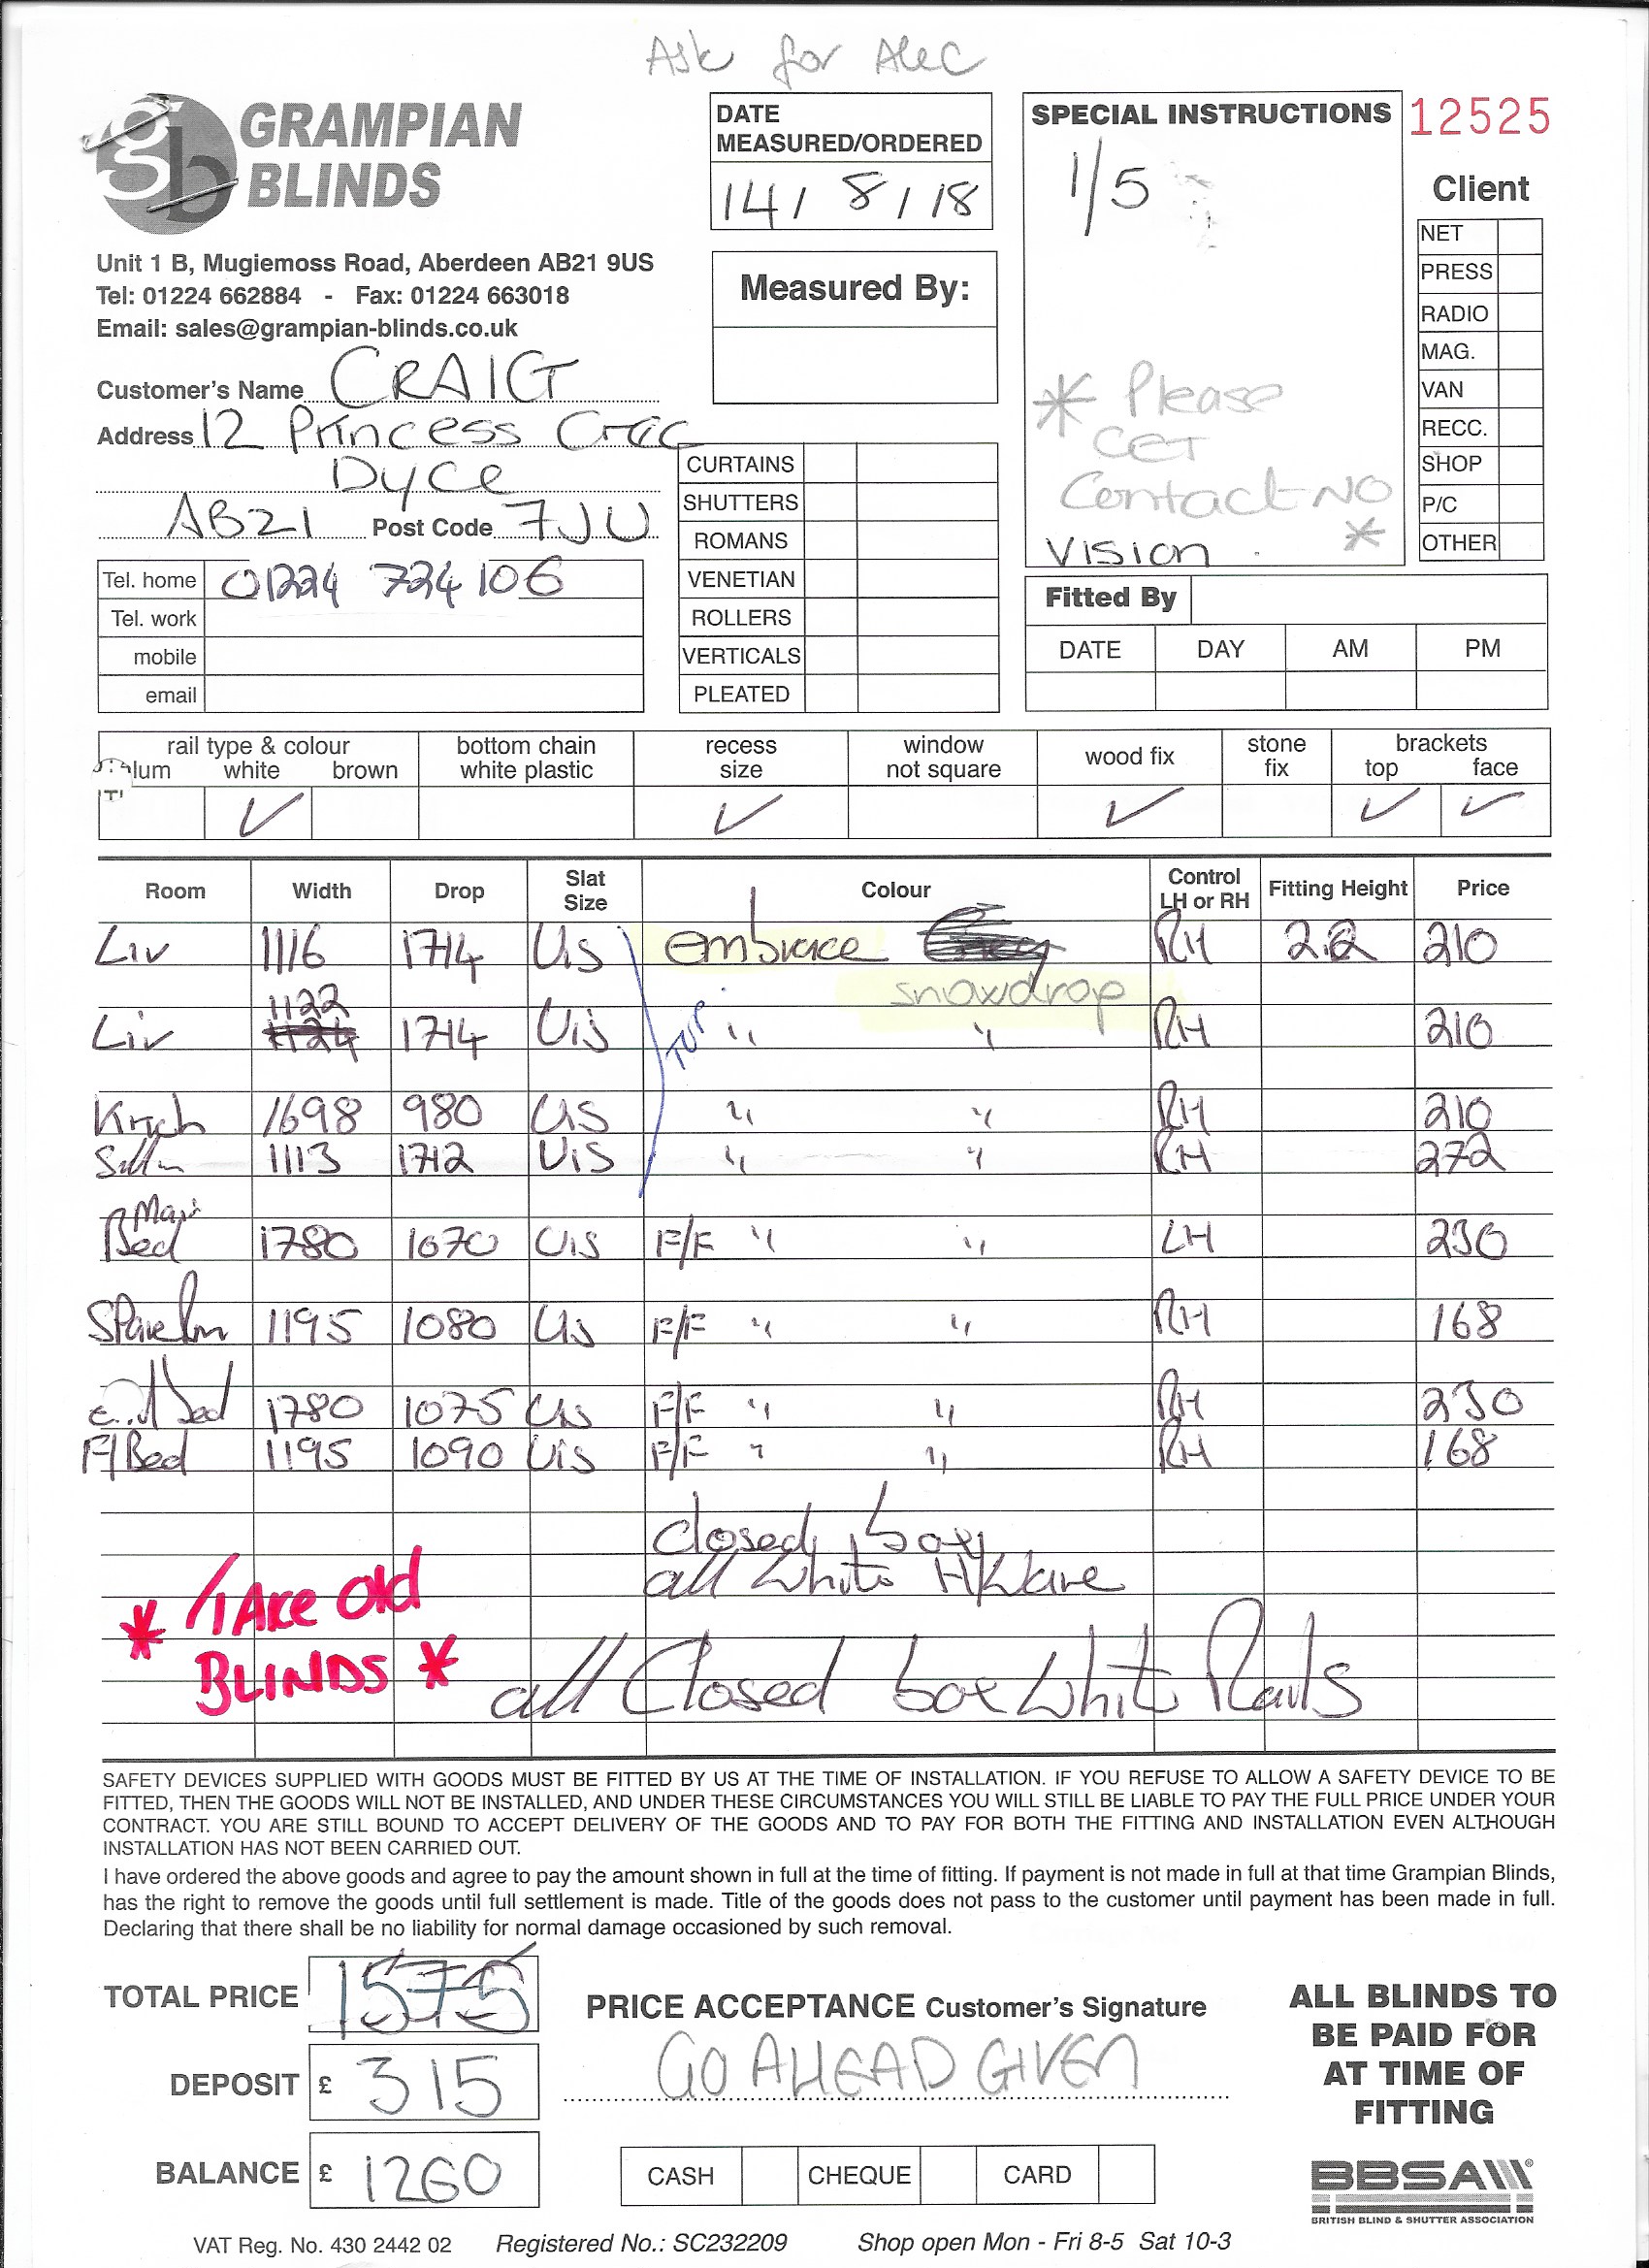 Ask for Alec
GRAMPIAN
BLINDS
gb
Unit 1 B, Mugiemoss Road, Aberdeen AB21 9US
Tel: 01224 662884 - Fax: 01224 663018
Email: sales@grampian-blinds.co.uk
DATE
MEASURED/ORDERED
14 / 8 / 18
Measured By:
SPECIAL INSTRUCTIONS
1/5
* Please
GET
Contact NO
*
Vision
12525
Client
NET
PRESS
RADIO
MAG.
VAN
RECC.
SHOP
P/C
OTHER
Customer's Name CRAIG
Address 12 Princess
Dyce
AB21 Post Code 7JU
Tel. home 01224 724106
Tel. work
mobile
email
CURTAINS
SHUTTERS
ROMANS
VENETIAN
ROLLERS
VERTICALS
PLEATED
Fitted By
DATE DAY AM PM
rail type & colour bottom chain recess window wood fix stone brackets
lum white brown white plastic size not square fix top face
✓ ✓ ✓ ✓ ✓
Room Width Drop Slat Size Colour Control LH or RH Fitting Height Price
Liv 1116 1714 Vis embrace RH 210
snowdrop
1122
Liv 1714 Vis " " RH 210
Kitch 1698 980 Vis " " RH 210
1113 1712 Vis " " RH 272
Main
Bed 1780 1070 Vis F/F " " LH 230
Spare Rm 1195 1080 Vis F/F " " RH 168
Bed 1780 1075 Vis F/F " " RH 230
Bed 1195 1090 Vis F/F " " RH 168
closed box
all white
* TAke Old
BLINDS *
all Closed box White Rails
SAFETY DEVICES SUPPLIED WITH GOODS MUST BE FITTED BY US AT THE TIME OF INSTALLATION. IF YOU REFUSE TO ALLOW A SAFETY DEVICE TO BE
FITTED, THEN THE GOODS WILL NOT BE INSTALLED, AND UNDER THESE CIRCUMSTANCES YOU WILL STILL BE LIABLE TO PAY THE FULL PRICE UNDER YOUR
CONTRACT. YOU ARE STILL BOUND TO ACCEPT DELIVERY OF THE GOODS AND TO PAY FOR BOTH THE FITTING AND INSTALLATION EVEN ALTHOUGH
INSTALLATION HAS NOT BEEN CARRIED OUT.
I have ordered the above goods and agree to pay the amount shown in full at the time of fitting. If payment is not made in full at that time Grampian Blinds,
has the right to remove the goods until full settlement is made. Title of the goods does not pass to the customer until payment has been made in full.
Declaring that there shall be no liability for normal damage occasioned by such removal.
TOTAL PRICE 1575
DEPOSIT £ 315
BALANCE £ 1260
PRICE ACCEPTANCE Customer's Signature
GO AHEAD GIVEN
CASH CHEQUE CARD
ALL BLINDS TO
BE PAID FOR
AT TIME OF
FITTING
BBSA
BRITISH BLIND & SHUTTER ASSOCIATION
VAT Reg. No. 430 2442 02 Registered No.: SC232209 Shop open Mon - Fri 8-5 Sat 10-3